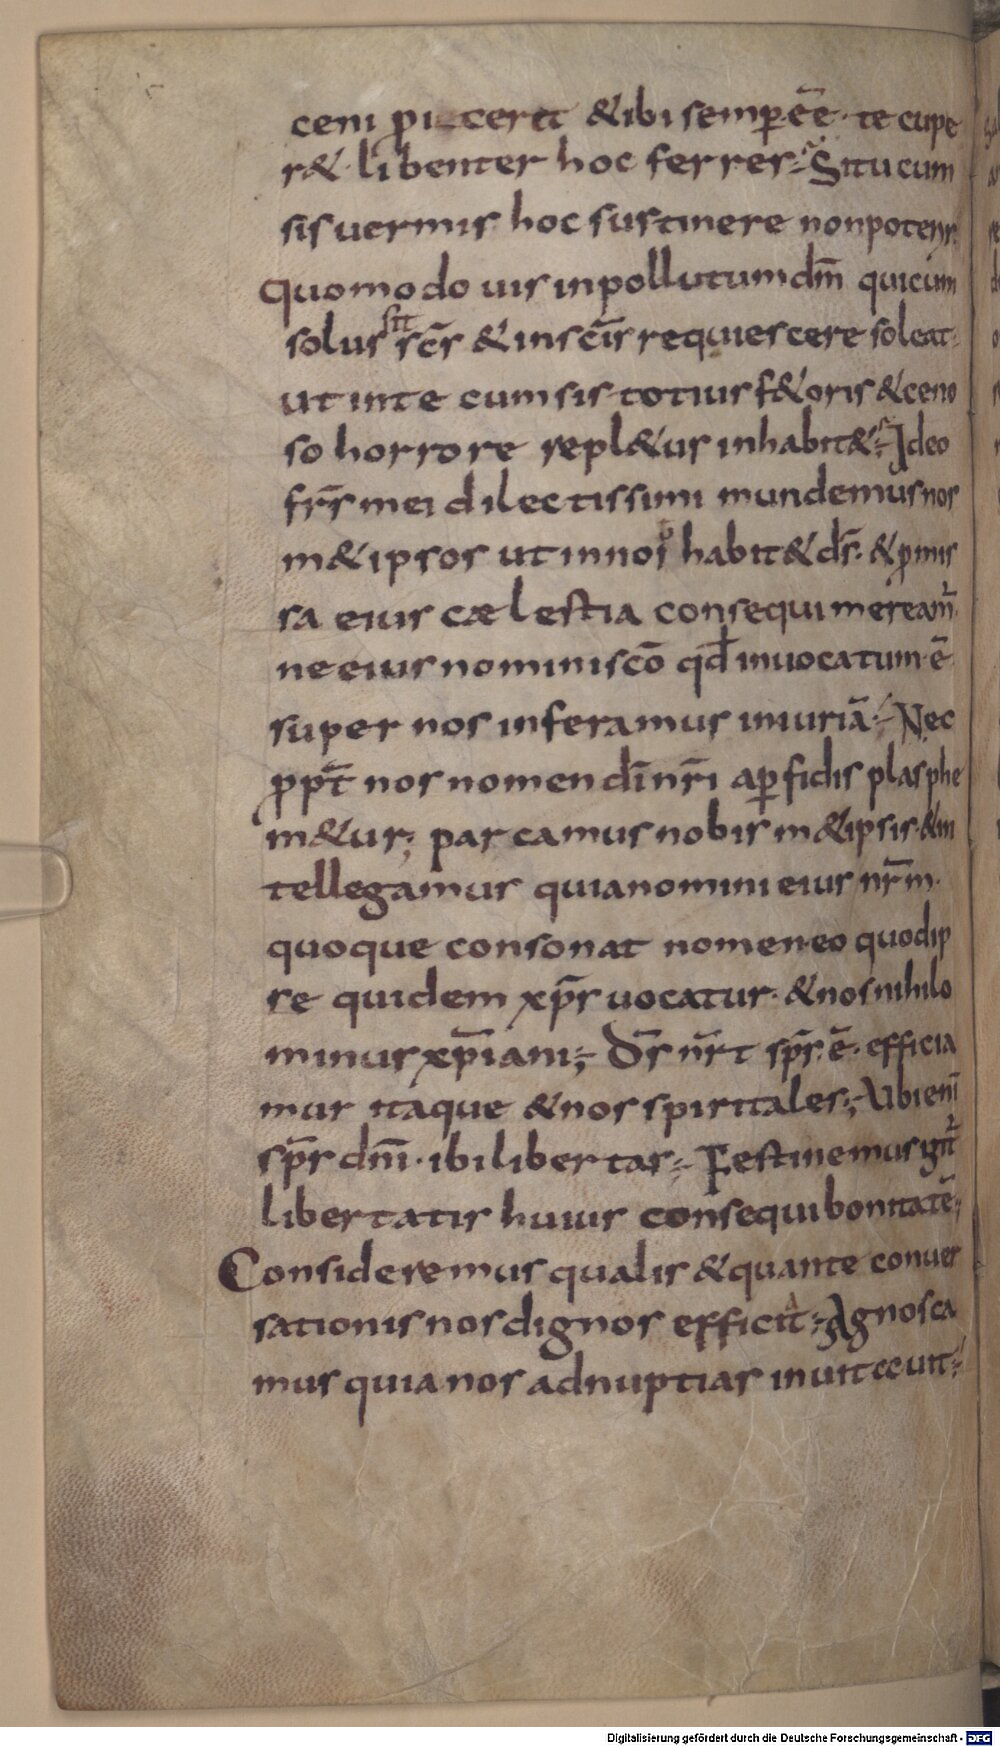 ceni p̄iaceret &ibi semp̱ēe· te cupe
r&· libenter hoc ferres·Si tu cum
sis uermis hoc sustinere nonpotens.
Quomodo uis inpollutum dm̄ quicum
solus sit sc̄s & insc̄is requiescere soleat·
ut inte cum sis totius f&oris & ceno
so horrore repl&us inhabit&·Ideo
fr̄s mei dilectissimi mundemus nos
m&ipsos ut innos habit& ds̄· & p̱mis
sa eius cælestia consequi mereamr̄
ne eius nomini scō qd̄ inuocatum·ē
super nos inferamus iniuriā·Nec
p̱pt̄ nos nomen dīnr̄i ap̱fidis plasphe
m&ur; parcamus nobis m&ipsis·&in
tellegamus quianomini eius nr̄m·
quoque consonat nomen·eo quod ip
se quidem xp̄s uocatur· & nos nihilo
minus xp̄iani; Ds̄ nr̄t sps̄·ē· efficia
mur itaque & nos spiritales; Ubi enī
sps̄ dn̄i· ibi libertas; Festinemus igit̄
libertatis huius consequi bonitatē;
Consideremus qualis & quante conuer
sationis nos dignos efficit; Agnosca
mus quia nos adnuptias inuitauit;
Digitalisierung gefördert durch die Deutsche Forschungsgemeinschaft - DFG